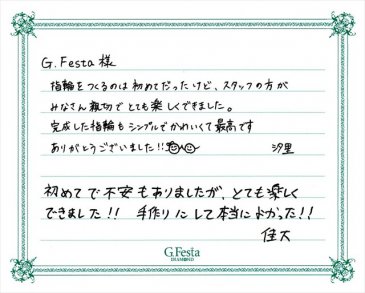 G.Festa 様
指輪をつくるのは初めてだったけど、スタッフの方が
みなさん親切でとても楽しくできました。
完成した指輪もシンプルでかわいくて最高です
ありがとうございました!! 汐里
初めてで不安もありましたが、とても楽しく
できました!! 手作りにして本当によかった!!
佳大
G.Festa
DIAMOND